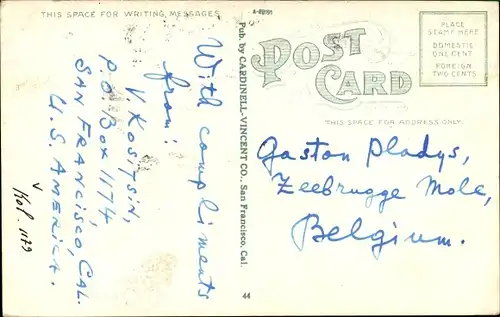 THIS SPACE FOR WRITING MESSAGES
With compliments
from:
V. Kositsin,
P.O. Box 1174,
SAN FRANCISCO, CAL.
U.S. AMERICA.
Kol. 1179
A-82191
Pub. by CARDINELL-VINCENT CO., San Francisco, Cal.
44
POST
CARD
PLACE
STAMP HERE
DOMESTIC
ONE CENT
FOREIGN
TWO CENTS
THIS SPACE FOR ADDRESS ONLY.
Gaston Pladys,
Zeebrugge Mole,
Belgium.